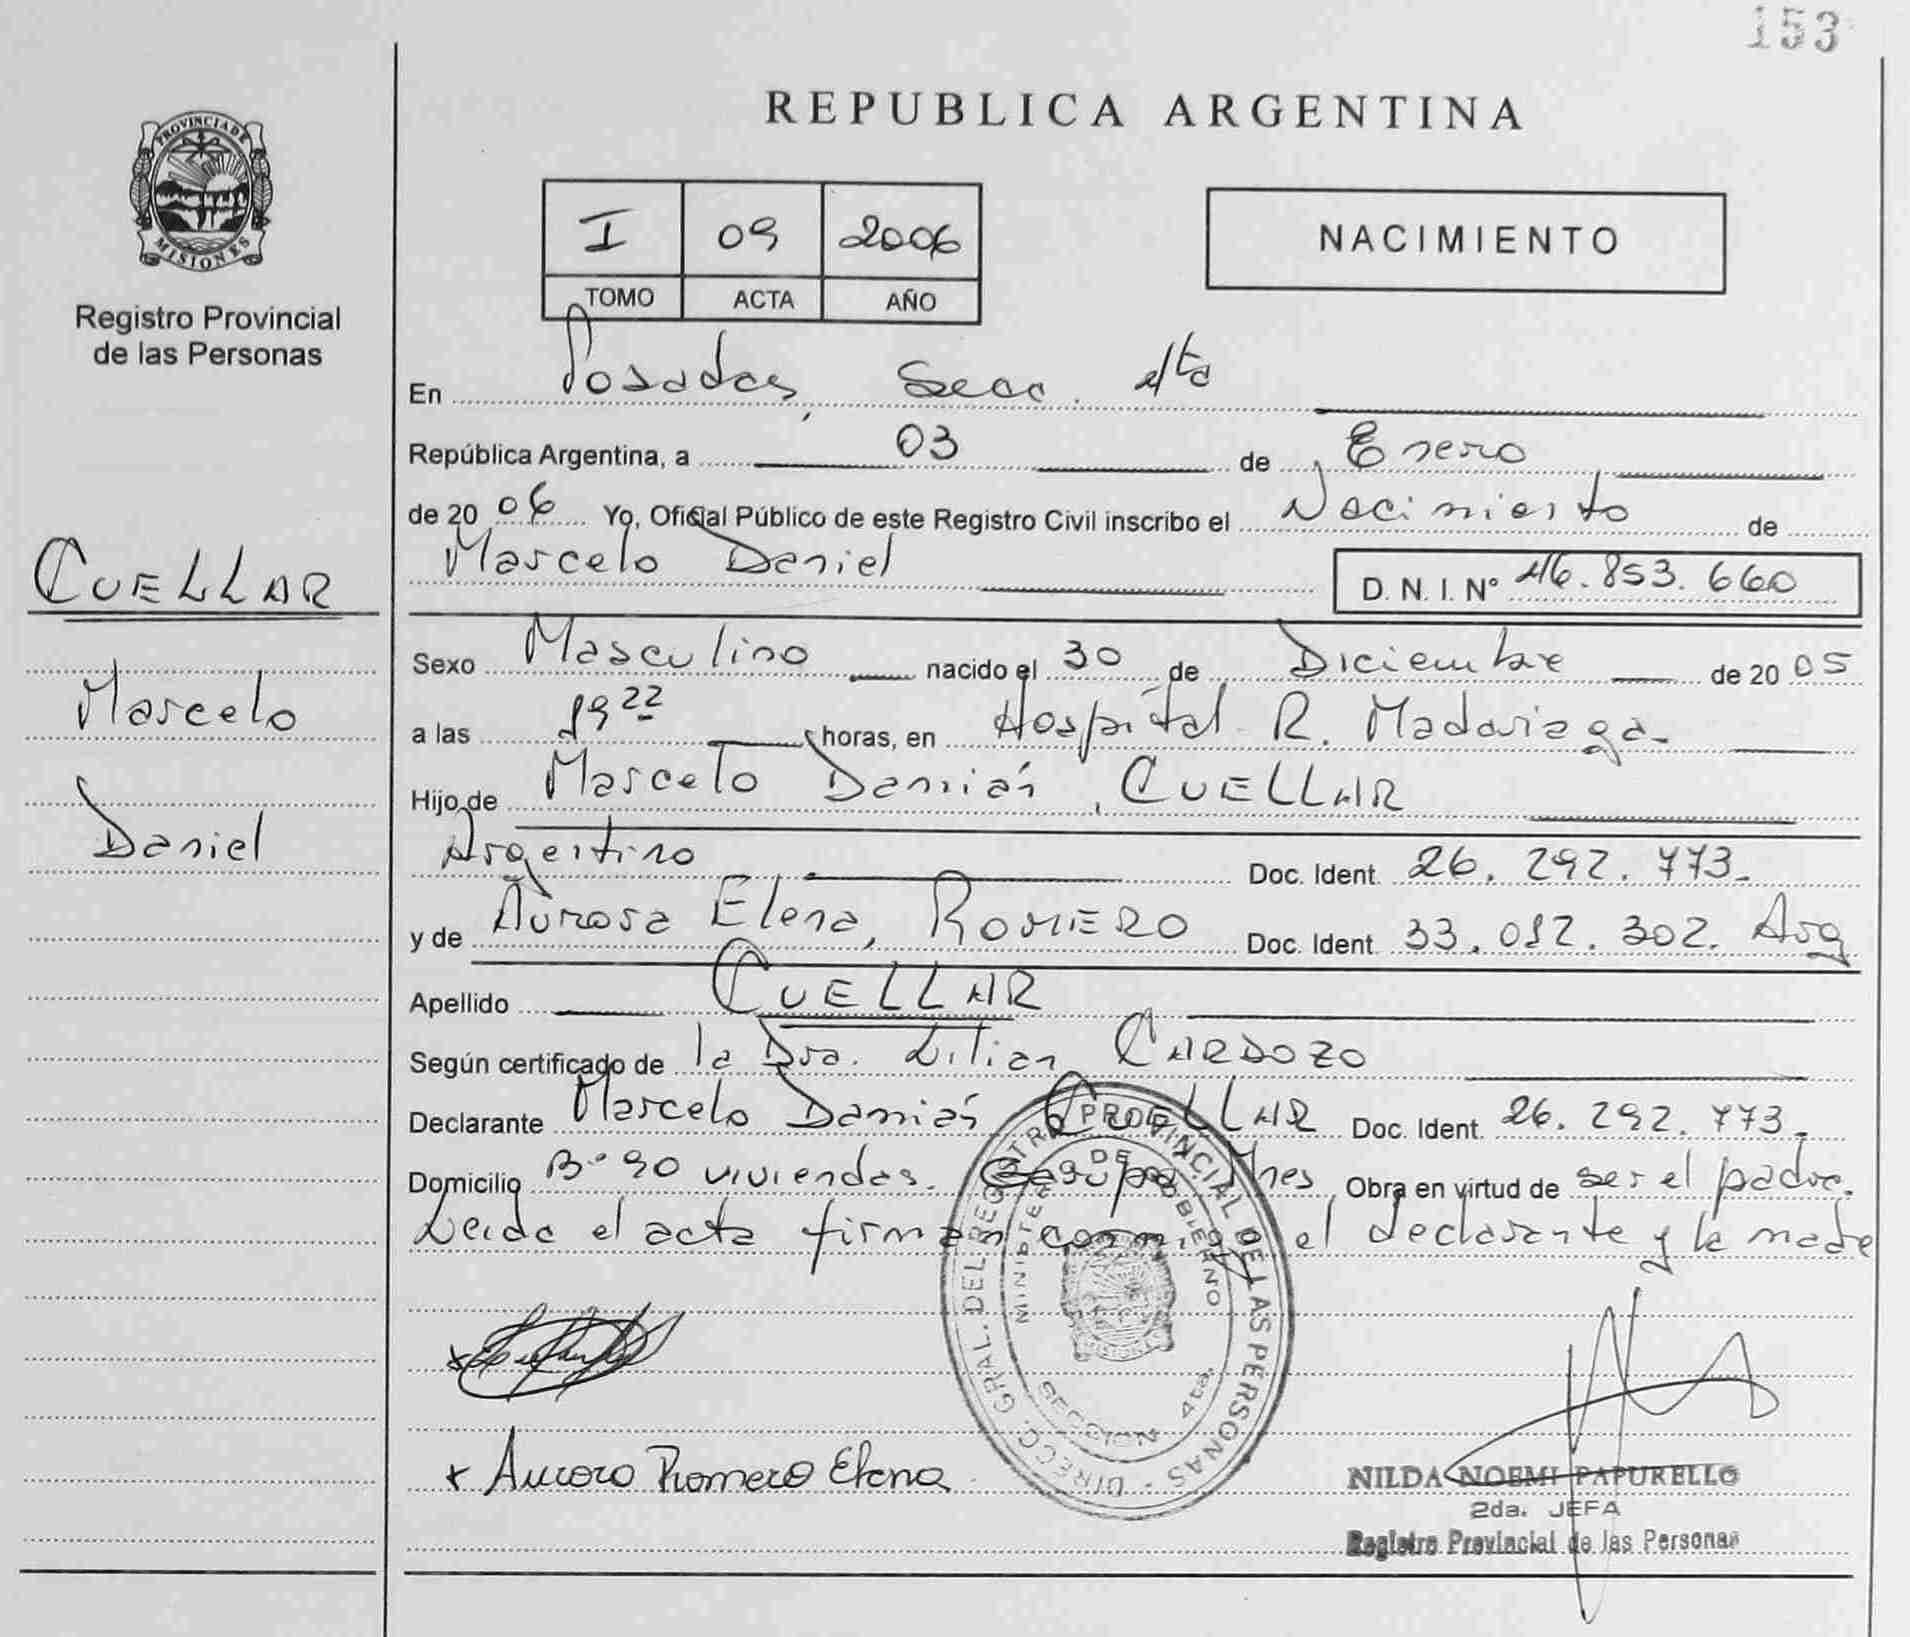 153
REPUBLICA ARGENTINA
PROVINCIA DE
MISIONES
Registro Provincial
de las Personas
I 09 2006
TOMO ACTA AÑO
NACIMIENTO
En Posadas, Secc. 4ta
República Argentina, a 03 de Enero
de 2006 Yo, Oficial Público de este Registro Civil inscribo el Nacimiento de
Marcelo Daniel D. N. I. N° 46.853.660
CUELLAR
Marcelo
Daniel
Sexo Masculino nacido el 30 de Diciembre de 2005
a las 19 22 horas, en Hospital R. Madariaga.
Hijo de Marcelo Damián, CUELLAR
Argentino Doc. Ident. 26.292.773.
y de Aurora Elena, ROMERO Doc. Ident. 33.012.302. Arg
Apellido CUELLAR
Según certificado de la Dra. Lilian CARDOZO
Declarante Marcelo Damián CUELLAR Doc. Ident. 26.292.773.
Domicilio B° 90 viviendas. Garupá Mnes Obra en virtud de ser el padre.
Leida el acta firman conmigo el declarante y la madre
DIRECC. GRAL. DEL REGISTRO PROVINCIAL DE LAS PERSONAS -
MINISTERIO DE GOBIERNO
SECCION 4ta.
x Aurora Romero Elena
NILDA NOEMI PAPURELLO
2da. JEFA
Registro Provincial de las Personas